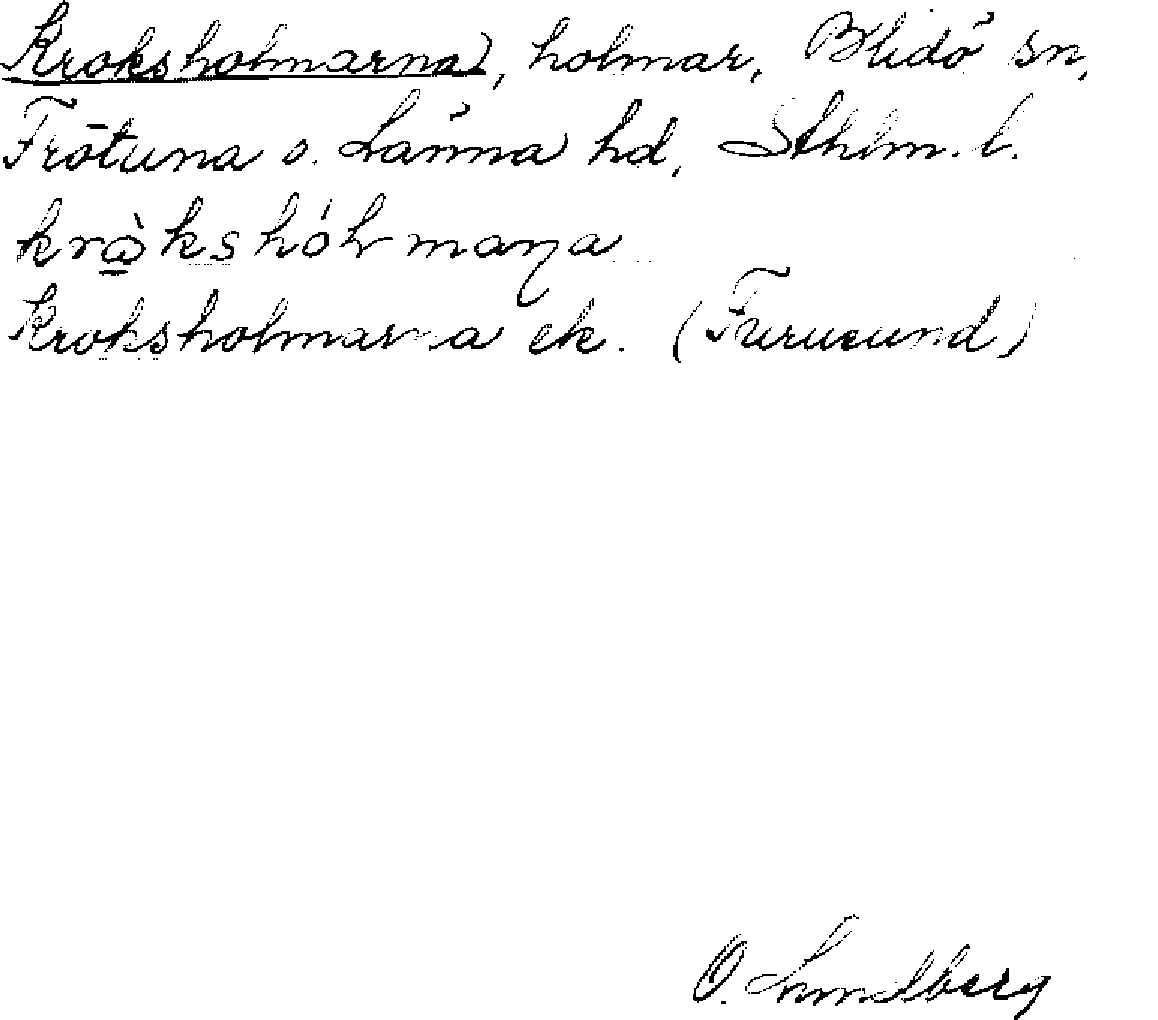 Kroksholmarna, holmar, Blidö sn,
Frötuna o. Länna hd, Sthlm. l.
Kroksholmarna ek. (Furusund)
O. Lundberg